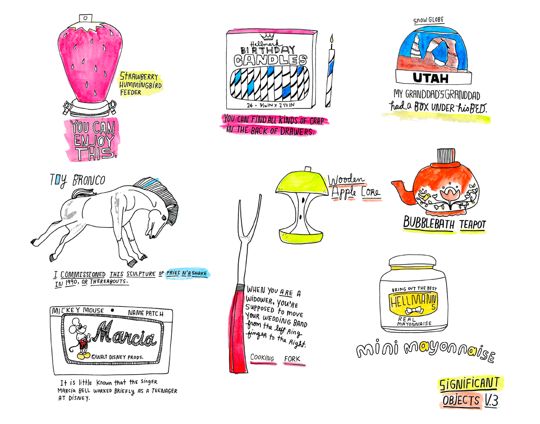 STRAWBERRY
HUMMINGBIRD
FEEDER
YOU CAN
ENJOY
THIS.
Hallmark
BIRTHDAY
CANDLES
YOU CAN FIND ALL KINDS OF CRAP
IN THE BACK OF DRAWERS.
SNOW GLOBE
UTAH
MY GRANDDAD'S GRANDDAD
had a BOX UNDER his BED.
TOY BRONCO
I COMMISSIONED THIS SCULPTURE OF FRIES N' A SHAKE
IN 1990, OR THEREABOUTS.
Wooden
Apple Core
BUBBLEBATH TEAPOT
WHEN YOU ARE A
WIDOWER, YOU'RE
SUPPOSED TO MOVE
YOUR WEDDING BAND
from the left ring
finger to the right.
COOKING FORK
MICKEY MOUSE NAME PATCH
Marcia
©WALT DISNEY PRODS.
It is little known that the singer
MARCIA BELL WORKED BRIEFLY AS A TEENAGER
AT DISNEY.
BRING OUT THE BEST
HELLMANN'S
REAL
MAYONNAISE
mini mayonnaise
SIGNIFICANT
OBJECTS V.3